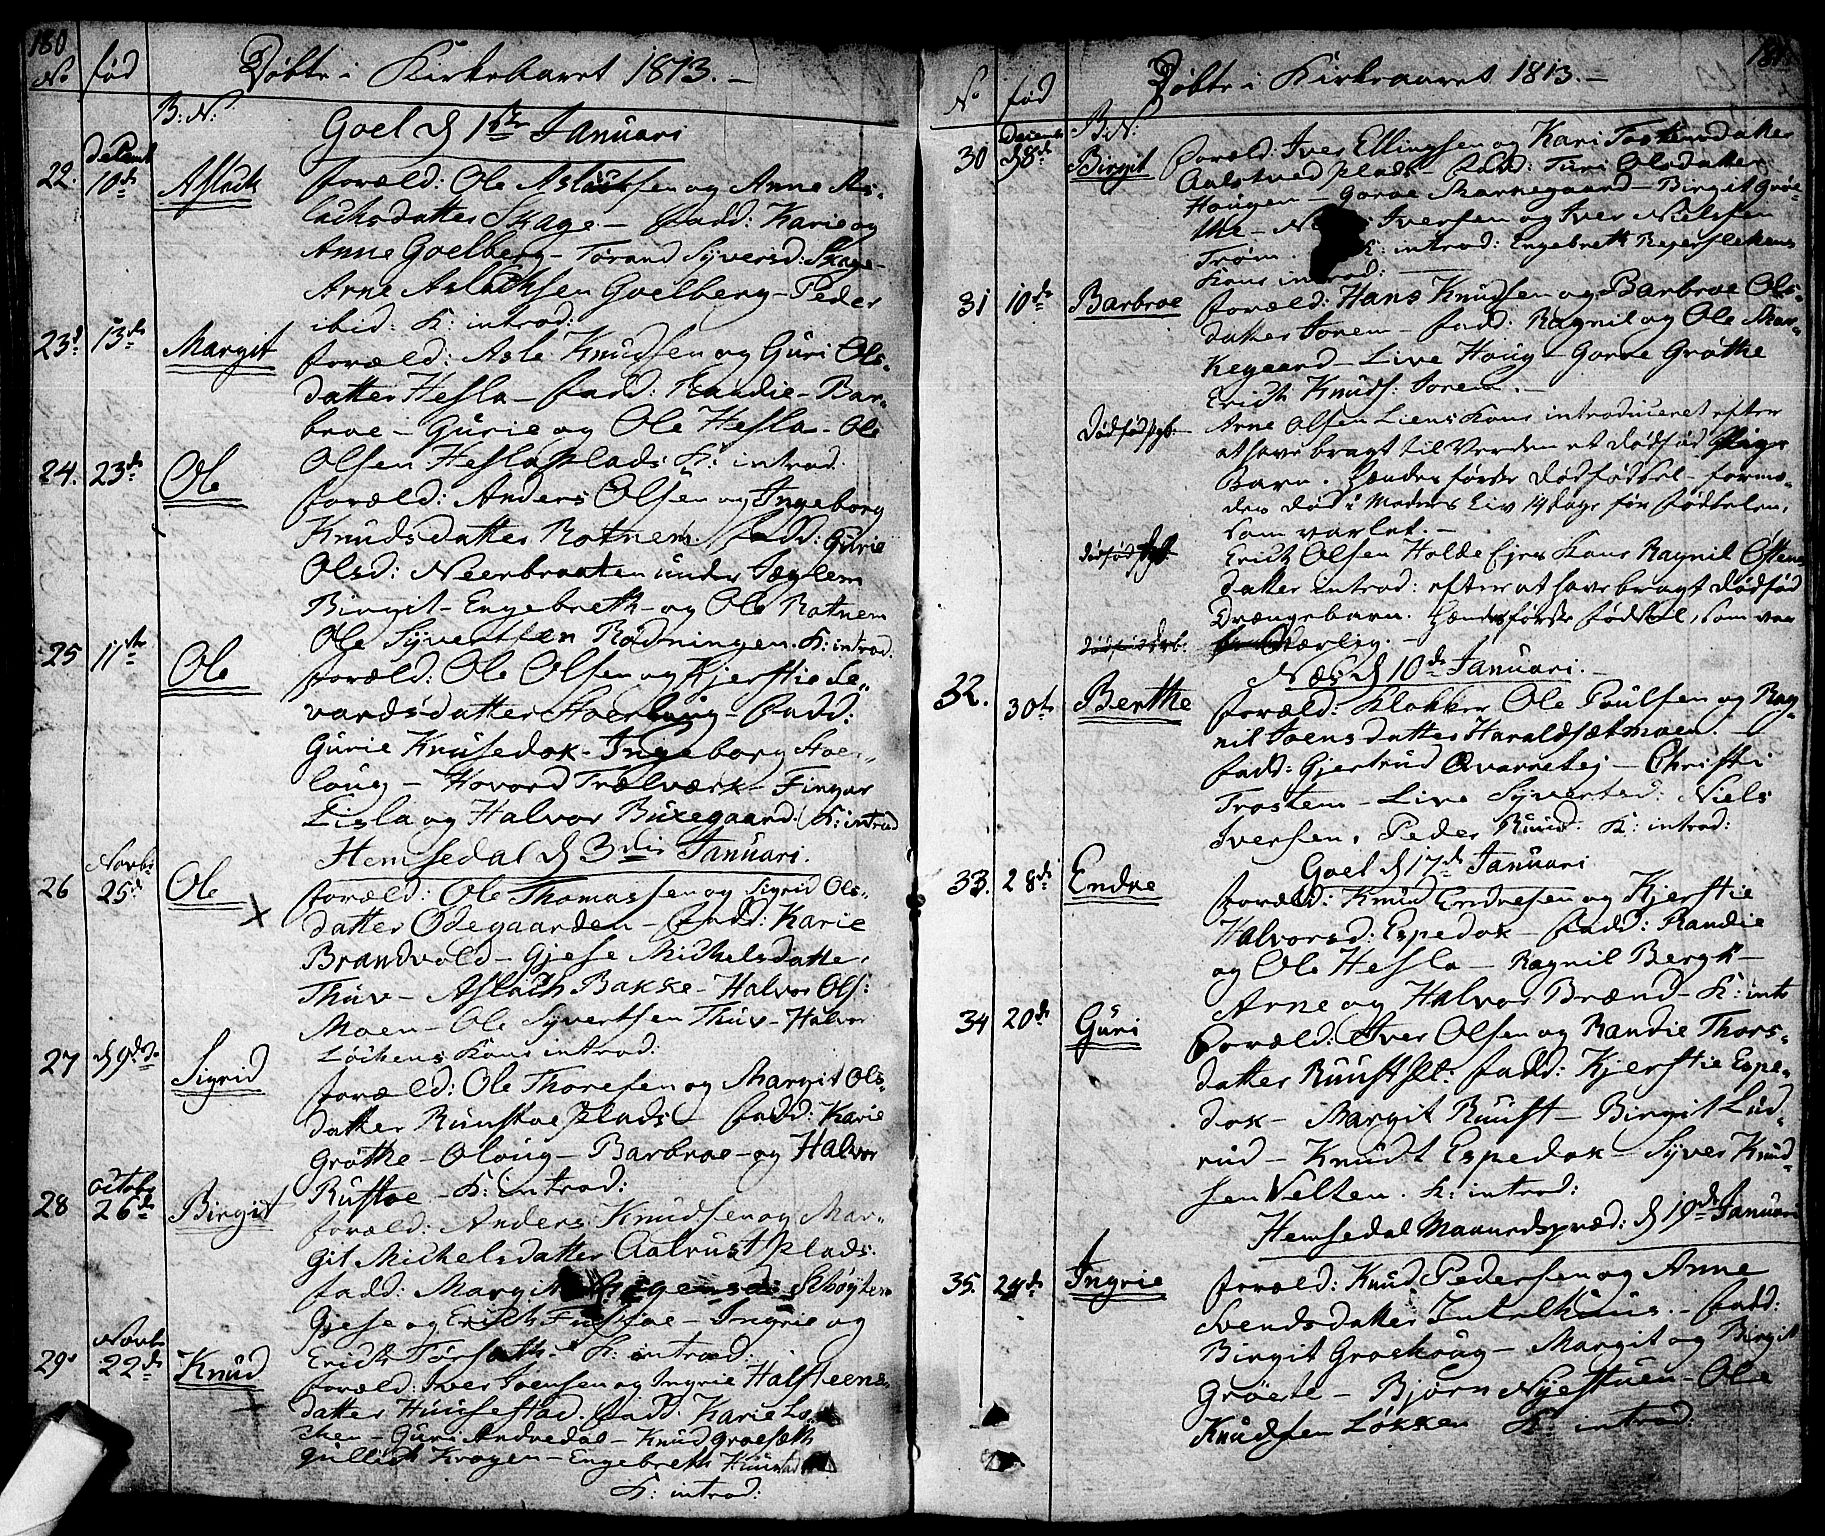 180
No
fød
Døbte i Kirkeaaret 1813. –
B: N:
Goel d 1ste Januari
22.
decemb
10de
Aslack
foræld: Ole Aslacksen og Anne As-
lacksdatter Skage – fadd: Karie og
Anne Goelberg – Torand Syversd: Skage –
Arne Aslacksen Goelberg – Peder
ibid: K: introd:
23
13de
Margit
foræld: Asle Knudsen og Guri Ols-
datter Hesla – fadd: Randie – Bar-
broe – Gurie og Ole Hesla – Ole
Olsen Hesla Plads K: introd:
24.
23de
Ole
foræld: Anders Olsen og Ingeborg
Knudsdatter Rotnem. fadd: Gurie
Olsd: Neerbraaten under
Birgit – Engebreth – og Ole Rotnem
Ole Syvertsen Rødningen. K: introd.
25
11te
Ole
foræld: Ole Olsen og Kjerstie Se-
vardsdatter Stoerloug – fadd:
Gurie Knusedok – Ingeborg Stoer-
loug – Hovord Trælværk – Fingar
Lisla og Halvor Buxegaard. K: introd
Hemsedal d 3die Januari.
26
Novbr
25de
Ole
foræld: Ole Thomassen og Sigrid Ols-
datter Ødegaarden – fadd: Karie
Brandvold – Gjese Michelsdatter
Thuv – Aslach Bakke – Halvor Ols:
Moen – Ole Syvertsen Thuv – Halvor
Løchens Kone introd:
27
d 9de
Sigrid
foræld: Ole Thoresen og Margit Ols-
datter Ruustoe Plads – fadd: Karie
Grøthe – Oloug – Barbroe – og Halvor
Rustoe – K: introd:
28
octob
26de
Birgit
foræld: Anders Knudsen og Mar-
git Michelsdatter Aalrust Plads.
fadd: Margit
Gjese og Erich – Ingrie og
Erich K: introd:
29
Novbr
22de
Knud
foræld: Iver Joensen og Ingrie Halsteens-
datter Huusestad. fadd: Karie Lø-
chen – Guri Andredal – Knud Groeseth
Gullich Krogen – Engebreth
K: introd:
181
No
fød
Døbte i Kirkeaaret 1813. –
B: N:
30
Decemb
Birgit
foræld: Iver Ellingsen og Kari Torstensdatter
Plads – fadd: Turi Olsdatter
Hougen – Goroe Markegaard – Birgit Grø-
the – Iversen og Iver Nielsen
Trøim. K: introd: Engebreth
Kone introd:
31
10de
Barbroe
foræld: Hans Knudsen og Barbroe Ols-
datter Torem – fadd: Ragnil og Ole Mar-
kegaard – Live Houg – Goroe Grøthe
Erich Knuds: Torem. –
Dødfød
Arne Olsen Liens Kone introduceret efter
at have bragt til Verden et dødfød Pige
Barn. Hendes første dødfødsel – forme-
den død i Moders Liv 14 dage før fødselen,
som varlet. –
Erich Olsen Kone Ragnil
datter introd: efter at have bragt dødfød
Drængebarn. Hendes første fødsel, som var
Næs d 10de Januari. –
32.
30te
Berthe
foræld: Klokker Ole Paulsen og Rag-
nil Joensdatter Haraldsetmoen. –
fadd: Gjertrud – Christi
Trostem – Live Syvertsd: Niels
Iversen, Peder Ruud. K: introd:
Goel d 17de Januari
33.
28de
Endre
foræld: Knud Endresen og Kjerstie
Halvorsd: Espedok – fadd: Randie
og Ole Hesla – Ragnil Bergk –
Arne og Halvor Brænd – K: int:
34
20de
Guri
foræld: Iver Olsen og Randie Thors-
datter Ruust fadd: Kjerstie Espe-
dok – Margit Ruust – Birgit Lud-
rud – Knudt Espedok – Syver Knud-
sen Velten. K: introd:
Hemsedal d 19de Januari
35.
24de
Ingrie
foræld: Knud Pedersen og Anne
Svendsdatter – fadd:
Birgit Groehoug – Margit og Birgit
Grøete – Bjørn Nyestuen – Ole
Knudsen Løkken K: introd: